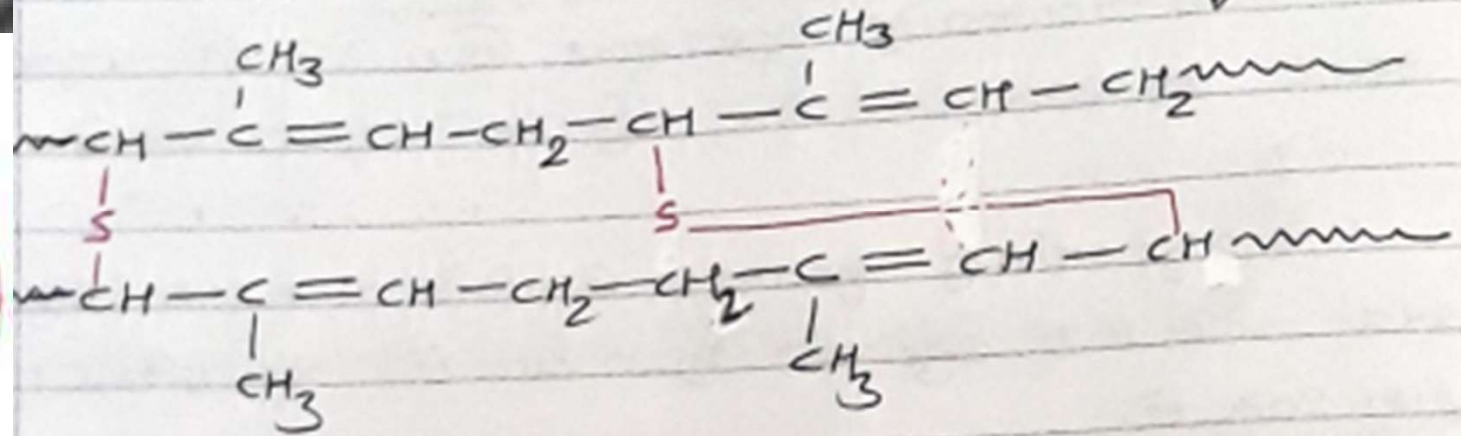 CH3 CH3
CH - C = CH - CH2 - CH - C = CH - CH2
S S
CH - C = CH - CH2 - CH2 - C = CH - CH
CH3 CH3